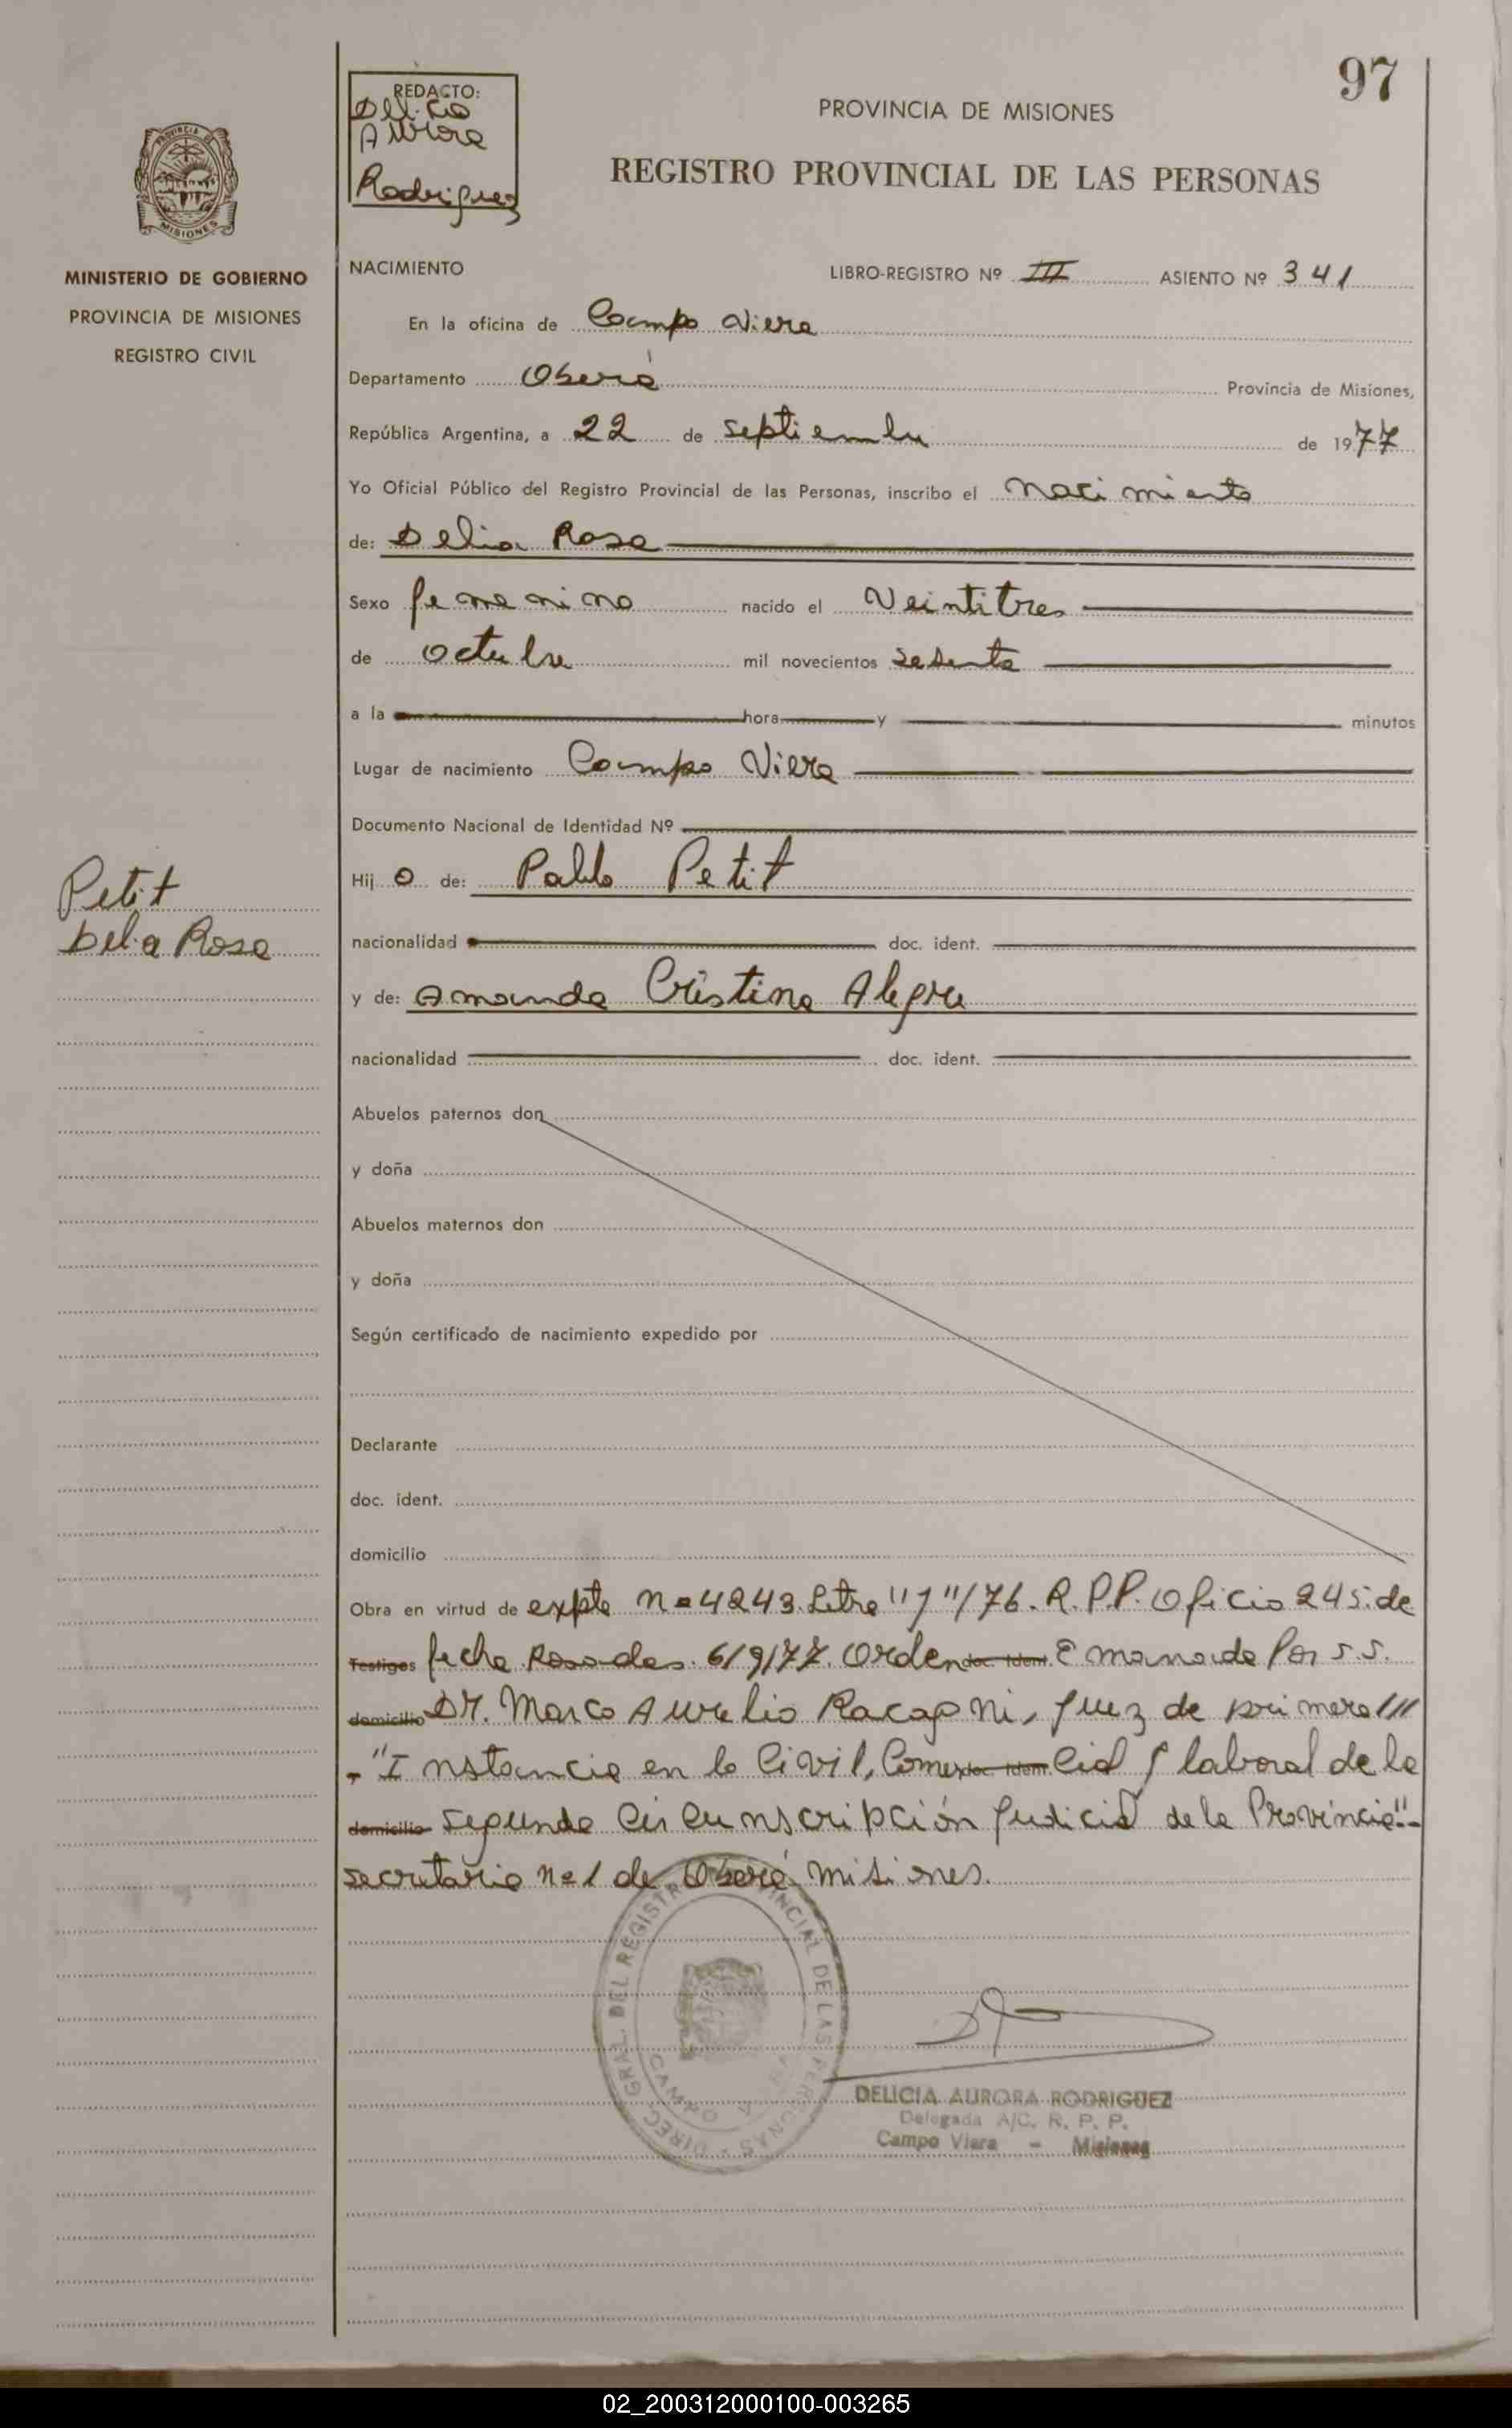 97
REDACTO:
Delicia
Aurora
Rodriguez
PROVINCIA DE MISIONES
REGISTRO PROVINCIAL DE LAS PERSONAS
PROVINCIA DE
MISIONES
MINISTERIO DE GOBIERNO
PROVINCIA DE MISIONES
REGISTRO CIVIL
NACIMIENTO LIBRO-REGISTRO Nº III ASIENTO Nº 341
En la oficina de Campo Viera
Departamento Oberá Provincia de Misiones,
República Argentina, a 22 de septiembre de 1977
Yo Oficial Público del Registro Provincial de las Personas, inscribo el Nacimiento
de: Delia Rosa
Sexo femenino nacido el Veintitres
de octubre mil novecientos sesenta
a la hora y minutos
Lugar de nacimiento Campo Viera
Documento Nacional de Identidad Nº
Hij o de: Pablo Petit
Petit
Delia Rosa
nacionalidad doc. ident.
y de: Amanda Cristina Alegre
nacionalidad doc. ident.
Abuelos paternos don
y doña
Abuelos maternos don
y doña
Según certificado de nacimiento expedido por
Declarante
doc. ident.
domicilio
Obra en virtud de expte nº 4243 Letra "J"/76. R.P.P. Oficio 245 de
Testigos fecha Posadas 6/9/77. Orden doc. ident. Emanada Por S.S.
domicilio Dr. Marco Aurelio Racagni, Juez de primera ///
"Instancia en lo Civil, Comer doc. ident. cial y laboral de la
domicilio segunda Circunscripción Judicial de la Provincia"-
secretaria nº 1 de Oberá misiones.
DIREC. GRAL. DEL REGISTRO PROVINCIAL DE LAS PERSONAS
CAMPO
DELICIA AURORA RODRIGUEZ
Delegada A/C. R. P. P.
Campo Viera - Misiones
02_200312000100-003265